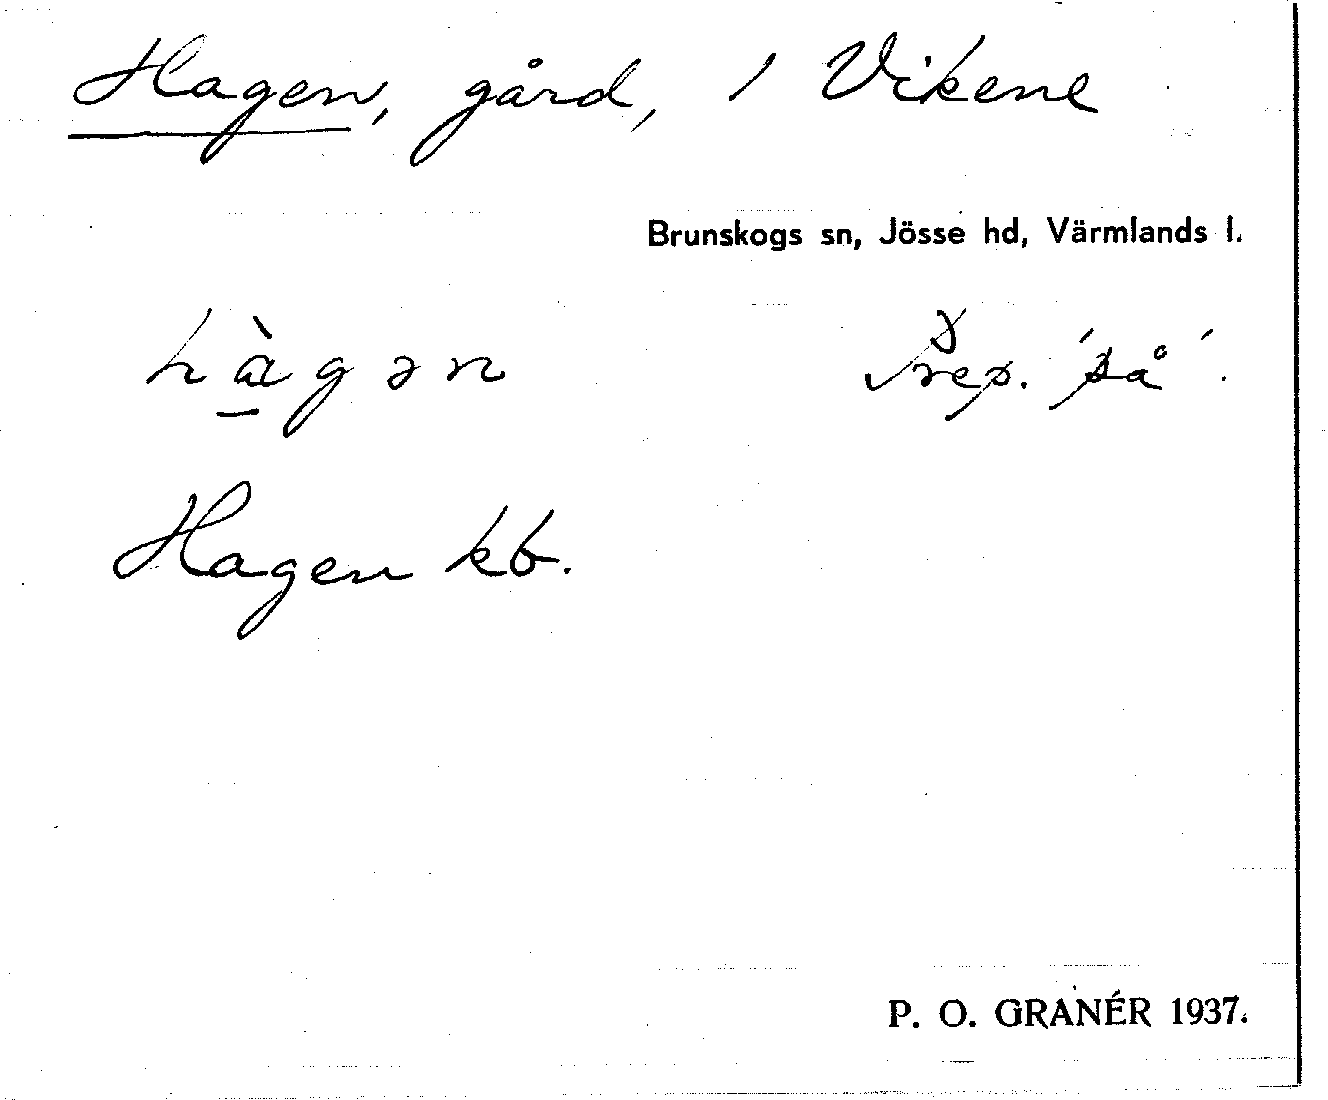 Hagen, gård, 1 Vikene
Brunskogs sn, Jösse hd, Värmlands l.
hàgən Prep. 'på'.
Hagen kb.
P. O. GRANÉR 1937.